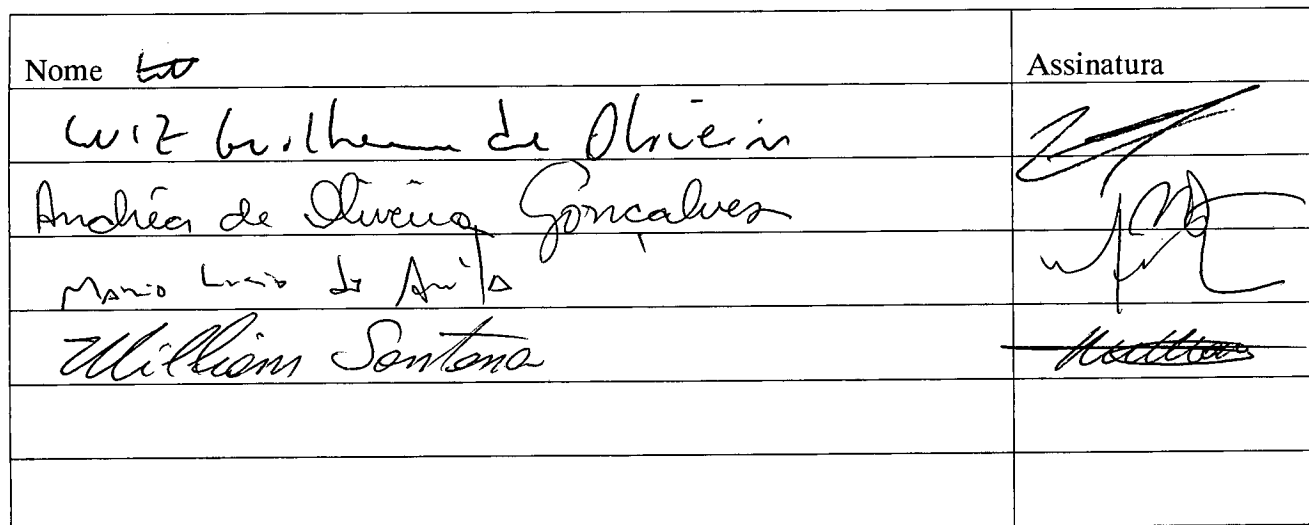 Nome Assinatura
Luiz Guilherme de Oliveira
Andréa de Oliveira Gonçalves
Mario Lucio de Avila
William Santana